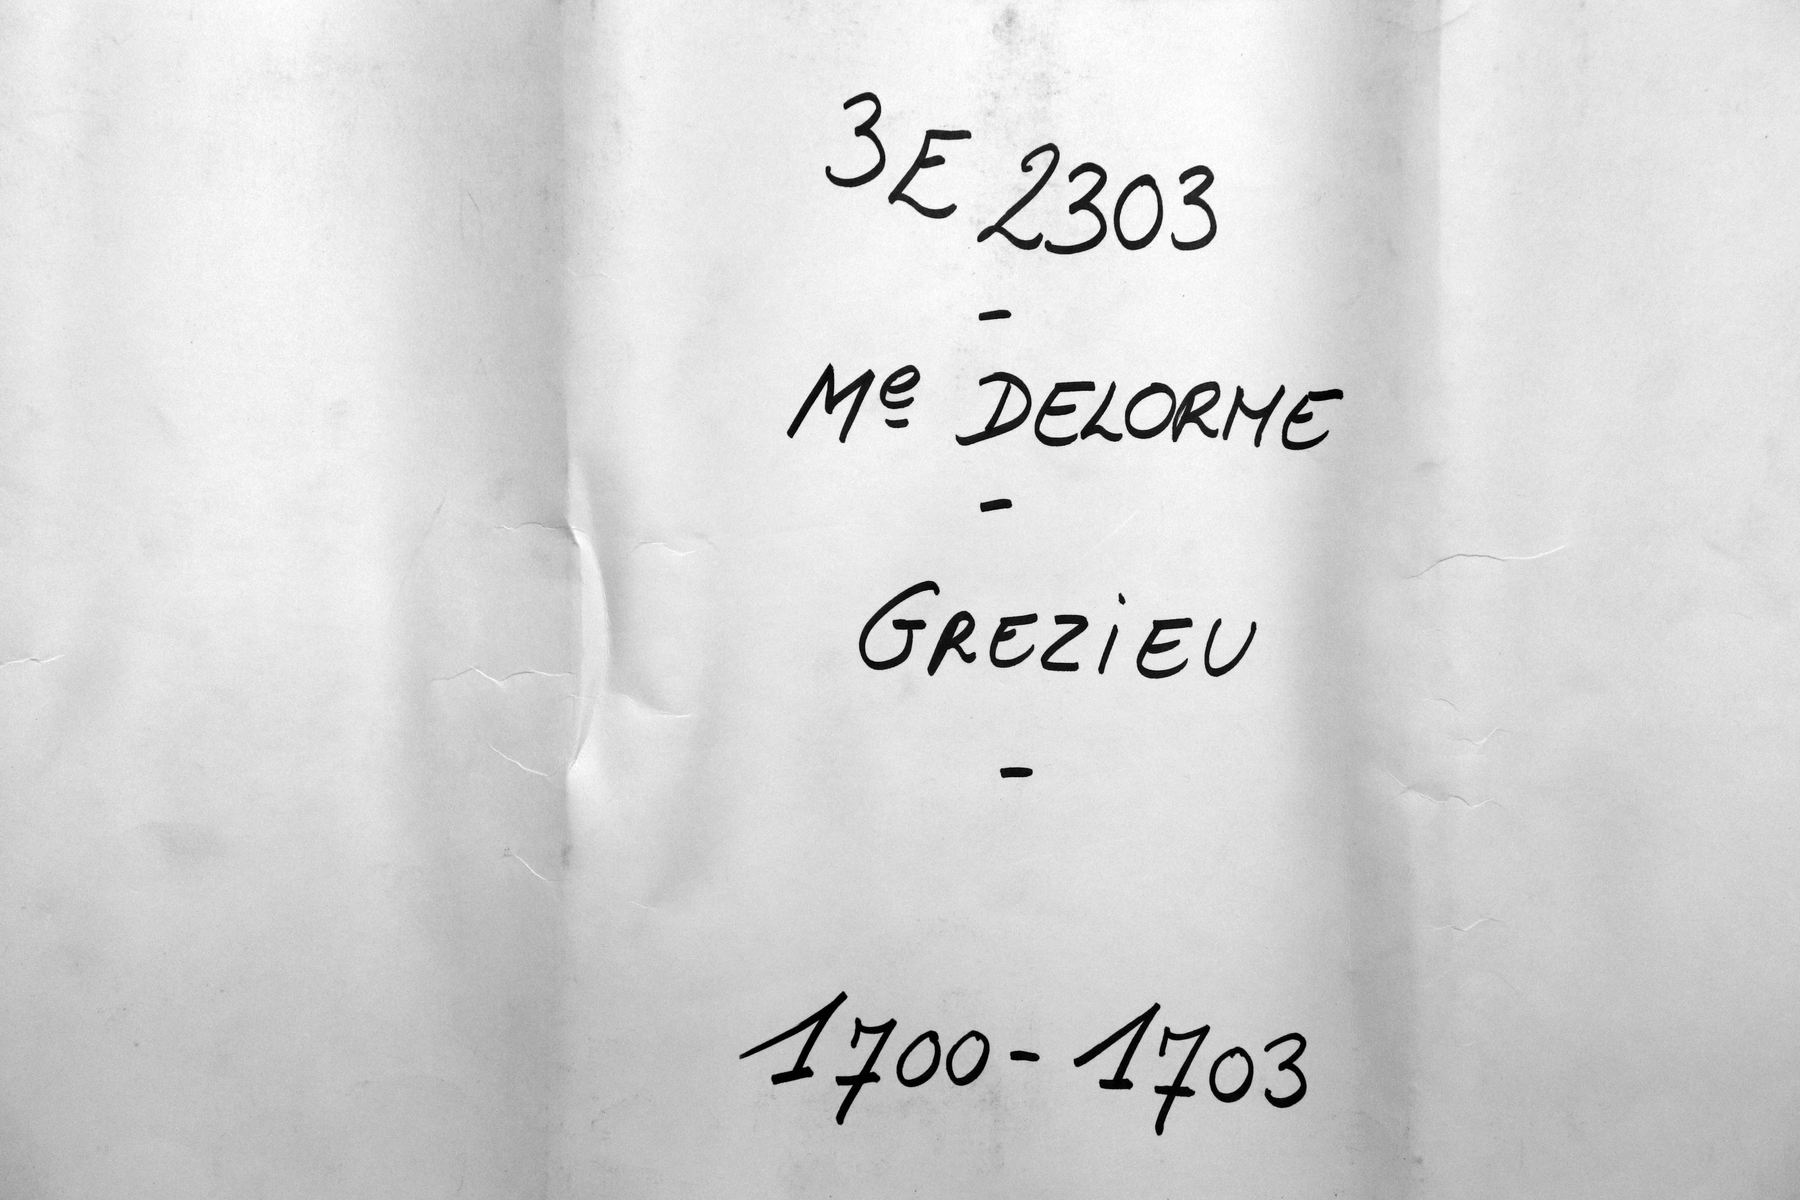 3E 2303
-
Me DELORME
-
GREZiEU
-
1700 - 1703